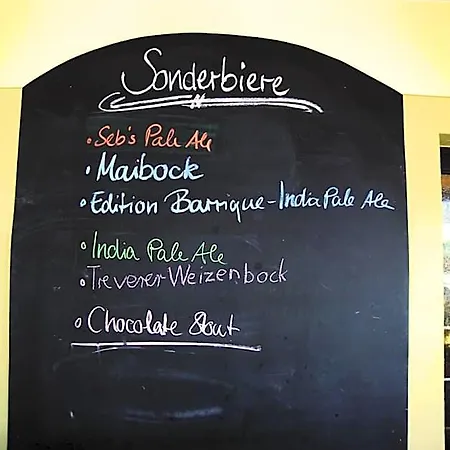 Sonderbiere
• Seb's Pale Ale
• Maibock
• Edition Barrique-India Pale Ale
• India Pale Ale
• Treverer Weizenbock
• Chocolate Stout